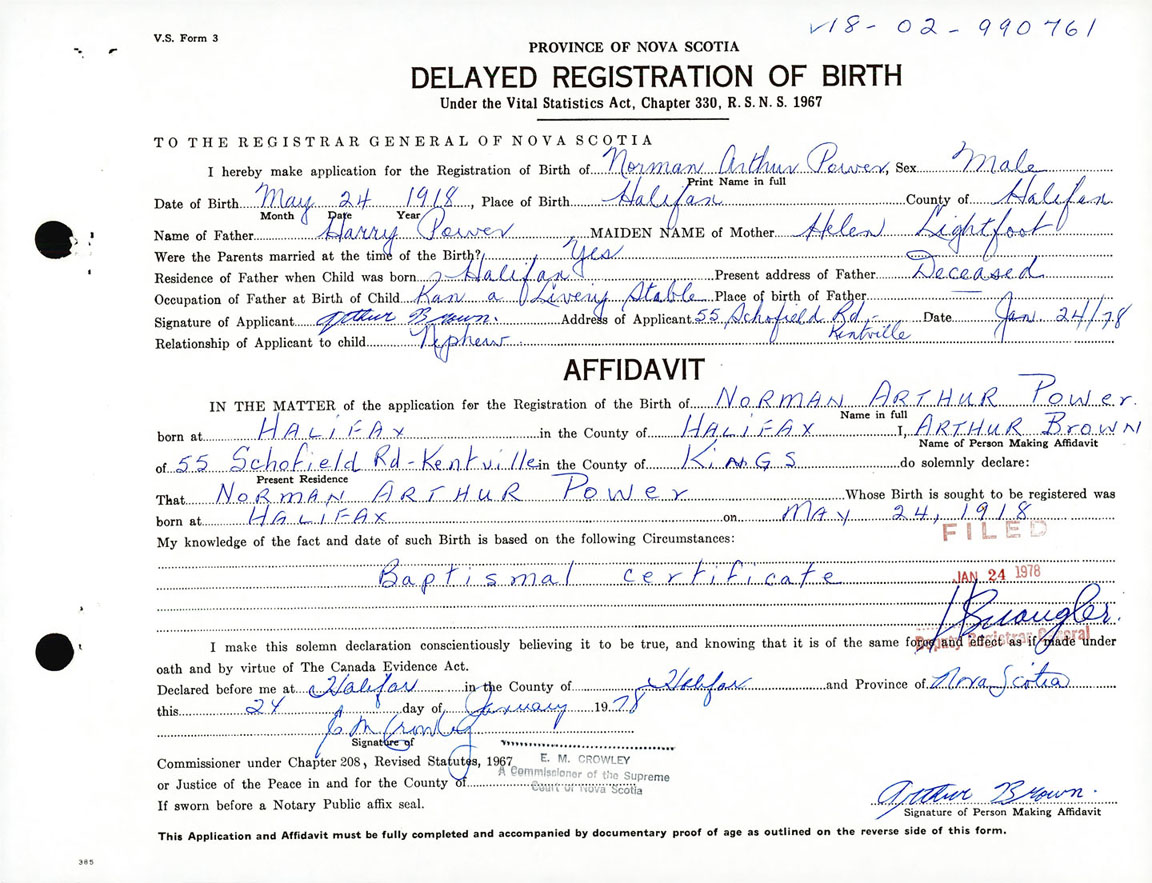 V.S. Form 3
V18-02-990761
PROVINCE OF NOVA SCOTIA
DELAYED REGISTRATION OF BIRTH
Under the Vital Statistics Act, Chapter 330, R.S.N.S. 1967
TO THE REGISTRAR GENERAL OF NOVA SCOTIA
I hereby make application for the Registration of Birth of Norman Arthur Power, Sex Male
Print Name in full
Date of Birth May 24 1918, Place of Birth Halifax County of Halifax
Month Date Year
Name of Father Harry Power MAIDEN NAME of Mother Helen Lightfoot
Were the Parents married at the time of the Birth? Yes
Residence of Father when Child was born Halifax Present address of Father Deceased
Occupation of Father at Birth of Child Ran a Livery Stable Place of birth of Father —
Signature of Applicant Arthur Brown. Address of Applicant 55 Schofield Rd.- Kentville Date Jan. 24/78
Relationship of Applicant to child Nephew
AFFIDAVIT
IN THE MATTER of the application for the Registration of the Birth of NORMAN ARTHUR POWer.
Name in full
born at HALIFAX in the County of HALIFAX I, ARTHUR BROWN
Name of Person Making Affidavit
of 55 Schofield Rd-Kentville in the County of KINGS do solemnly declare:
Present Residence
That NORMAN ARTHUR POWer Whose Birth is sought to be registered was
born at HALIFAX on MAY 24, 1918
FILED
My knowledge of the fact and date of such Birth is based on the following Circumstances:
Baptismal certificate
JAN 24 1978
Deputy Registrar General
I make this solemn declaration conscientiously believing it to be true, and knowing that it is of the same force and effect as if made under
oath and by virtue of The Canada Evidence Act.
Declared before me at Halifax in the County of Halifax and Province of Nova Scotia
this 24 day of January 1978
E M Crowley
Signature of
Commissioner under Chapter 208, Revised Statutes, 1967
E. M. CROWLEY
A Commissioner of the Supreme
Court of Nova Scotia
or Justice of the Peace in and for the County of
If sworn before a Notary Public affix seal.
Arthur Brown.
Signature of Person Making Affidavit
This Application and Affidavit must be fully completed and accompanied by documentary proof of age as outlined on the reverse side of this form.
385